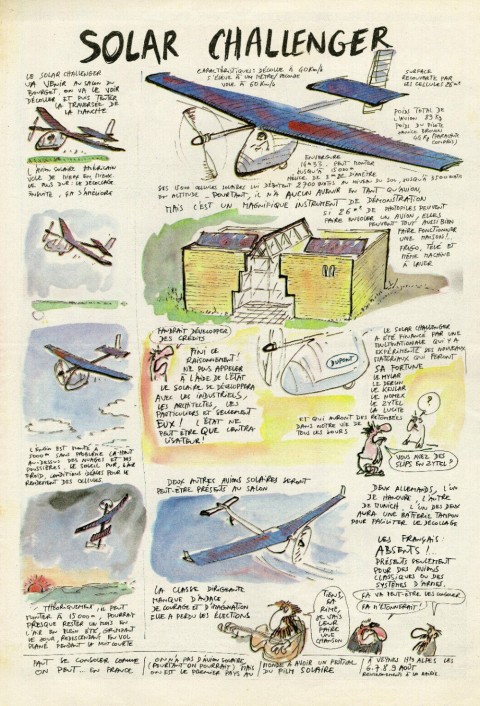 SOLAR CHALLENGER
LE SOLAR CHALLENGER
VA VENIR AU SALON DU
BOURGET, ON VA LE VOIR
DÉCOLLER ET PUIS TENTER
LA TRAVERSÉE DE
LA MANCHE
L'AVION SOLAIRE AMÉRICAIN
VOLE DE MIEUX EN MIEUX.
LE PLUS DUR: LE DÉCOLLAGE
ENSUITE, ÇA S'AMÉLIORE
CARACTÉRISTIQUES: DÉCOLLE À 40 Km/h
S'ÉLÈVE À UN MÈTRE/SECONDE
VOLE À 60 Km/h
SURFACE
RECOUVERTE PAR
LES CELLULES
POIDS TOTAL DE
L'AVION
POIDS DU PILOTE
JANICE BROWN
(PARACHUTE
COMPRIS)
ENVERGURE
PEUT MONTER
JUSQU'À
HÉLICE DE DE DIAMÈTRE
SES CELLULES SOLAIRES LUI DÉBITENT 2700 WATTS AU NIVEAU DU SOL, JUSQU'À
EN ALTITUDE - POURTANT, IL N'A AUCUN AVENIR EN TANT QU'AVION,
MAIS C'EST UN MAGNIFIQUE INSTRUMENT DE DÉMONSTRATION
SI DE PHOTOPILES PEUVENT
FAIRE ENVOLER UN AVION, ELLES
PEUVENT TOUT AUSSI BIEN
FAIRE FONCTIONNER
UNE MAISON!
FRIGO, TÉLÉ ET
MÊME MACHINE
À LAVER
FAUDRAIT DÉVELOPPER
DES CRÉDITS
FINI CE
RAISONNEMENT!
NE PLUS APPELER
À L'AIDE DE L'ÉTAT
LE SOLAIRE SE DÉVELOPPERA
AVEC LES INDUSTRIELS,
LES ARCHITECTES, LES
PARTICULIERS ET SEULEMENT
EUX! L'ÉTAT NE
PEUT ÊTRE QUE CENTRA
LISATEUR!
DUPONT
LE SOLAR CHALLENGER
A ÉTÉ FINANCÉ PAR UNE
MULTINATIONALE QUI Y A
EXPÉRIMENTÉ DES NOUVEAUX
MATÉRIAUX QUI FERONT
SA FORTUNE
LE MYLAR
LE DELRIN
LE KEVLAR
LE NOMEX
LE ZYTEL
LA LUCITE
ET QUI AURONT DES RETOMBÉES
DANS NOTRE VIE DE
TOUS LES JOURS
?
VOUS AVEZ DES
SLIPS EN ZYTEL?
SANS PROBLÈME LÀ-HAUT
AU-DESSUS DES NUAGES ET DES
POUSSIÈRES. LE SOLEIL PUR, L'AIR
FROID, CONDITIONS IDÉALES POUR LE
RENDEMENT DES CELLULES.
THÉORIQUEMENT, IL PEUT
MONTER À POURRAIT
PRESQUE RESTER UN MOIS EN
L'AIR EN PLEIN ÉTÉ, GRIMPANT
LE JOUR, REDESCENDANT EN VOL
PLANÉ PENDANT LA NUIT COURTE
DEUX AUTRES AVIONS SOLAIRES SERONT
PEUT-ÊTRE PRÉSENTS AU SALON
DEUX ALLEMANDS, L'UN
DE HANOVRE, L'AUTRE
DE MUNICH. L'UN DES DEUX
AURA UNE BATTERIE TAMPON
POUR FACILITER LE DÉCOLLAGE
LES FRANÇAIS:
ABSENTS!..
PRÉSENTS SEULEMENT
POUR DES AVIONS
CLASSIQUES OU DES
SYSTÈMES D'ARMES.
LA CLASSE DIRIGEANTE
MANQUE D'AUDACE
DE COURAGE ET D'IMAGINATION
ELLE A PERDU LES ÉLECTIONS.
TIENS,
ÇA
RIME,
JE VAIS
LEUR
FAIRE
UNE
CHANSON
ÇA VA PEUT-ÊTRE LES CONSOLER
ÇA M'ÉTONNERAIT!
FAUT SE CONSOLER COMME
ON PEUT... EN FRANCE
ON N'A PAS D'AVION SOLAIRE
(POURTANT ON POURRAIT) MAIS
ON EST LE PREMIER PAYS AU
MONDE À AVOIR UN FESTIVAL
DU FILM SOLAIRE
À VEYNES Htes ALPES LES
6.7.8.9 AOÛT
RENSEIGNEMENTS À LA MAIRIE.